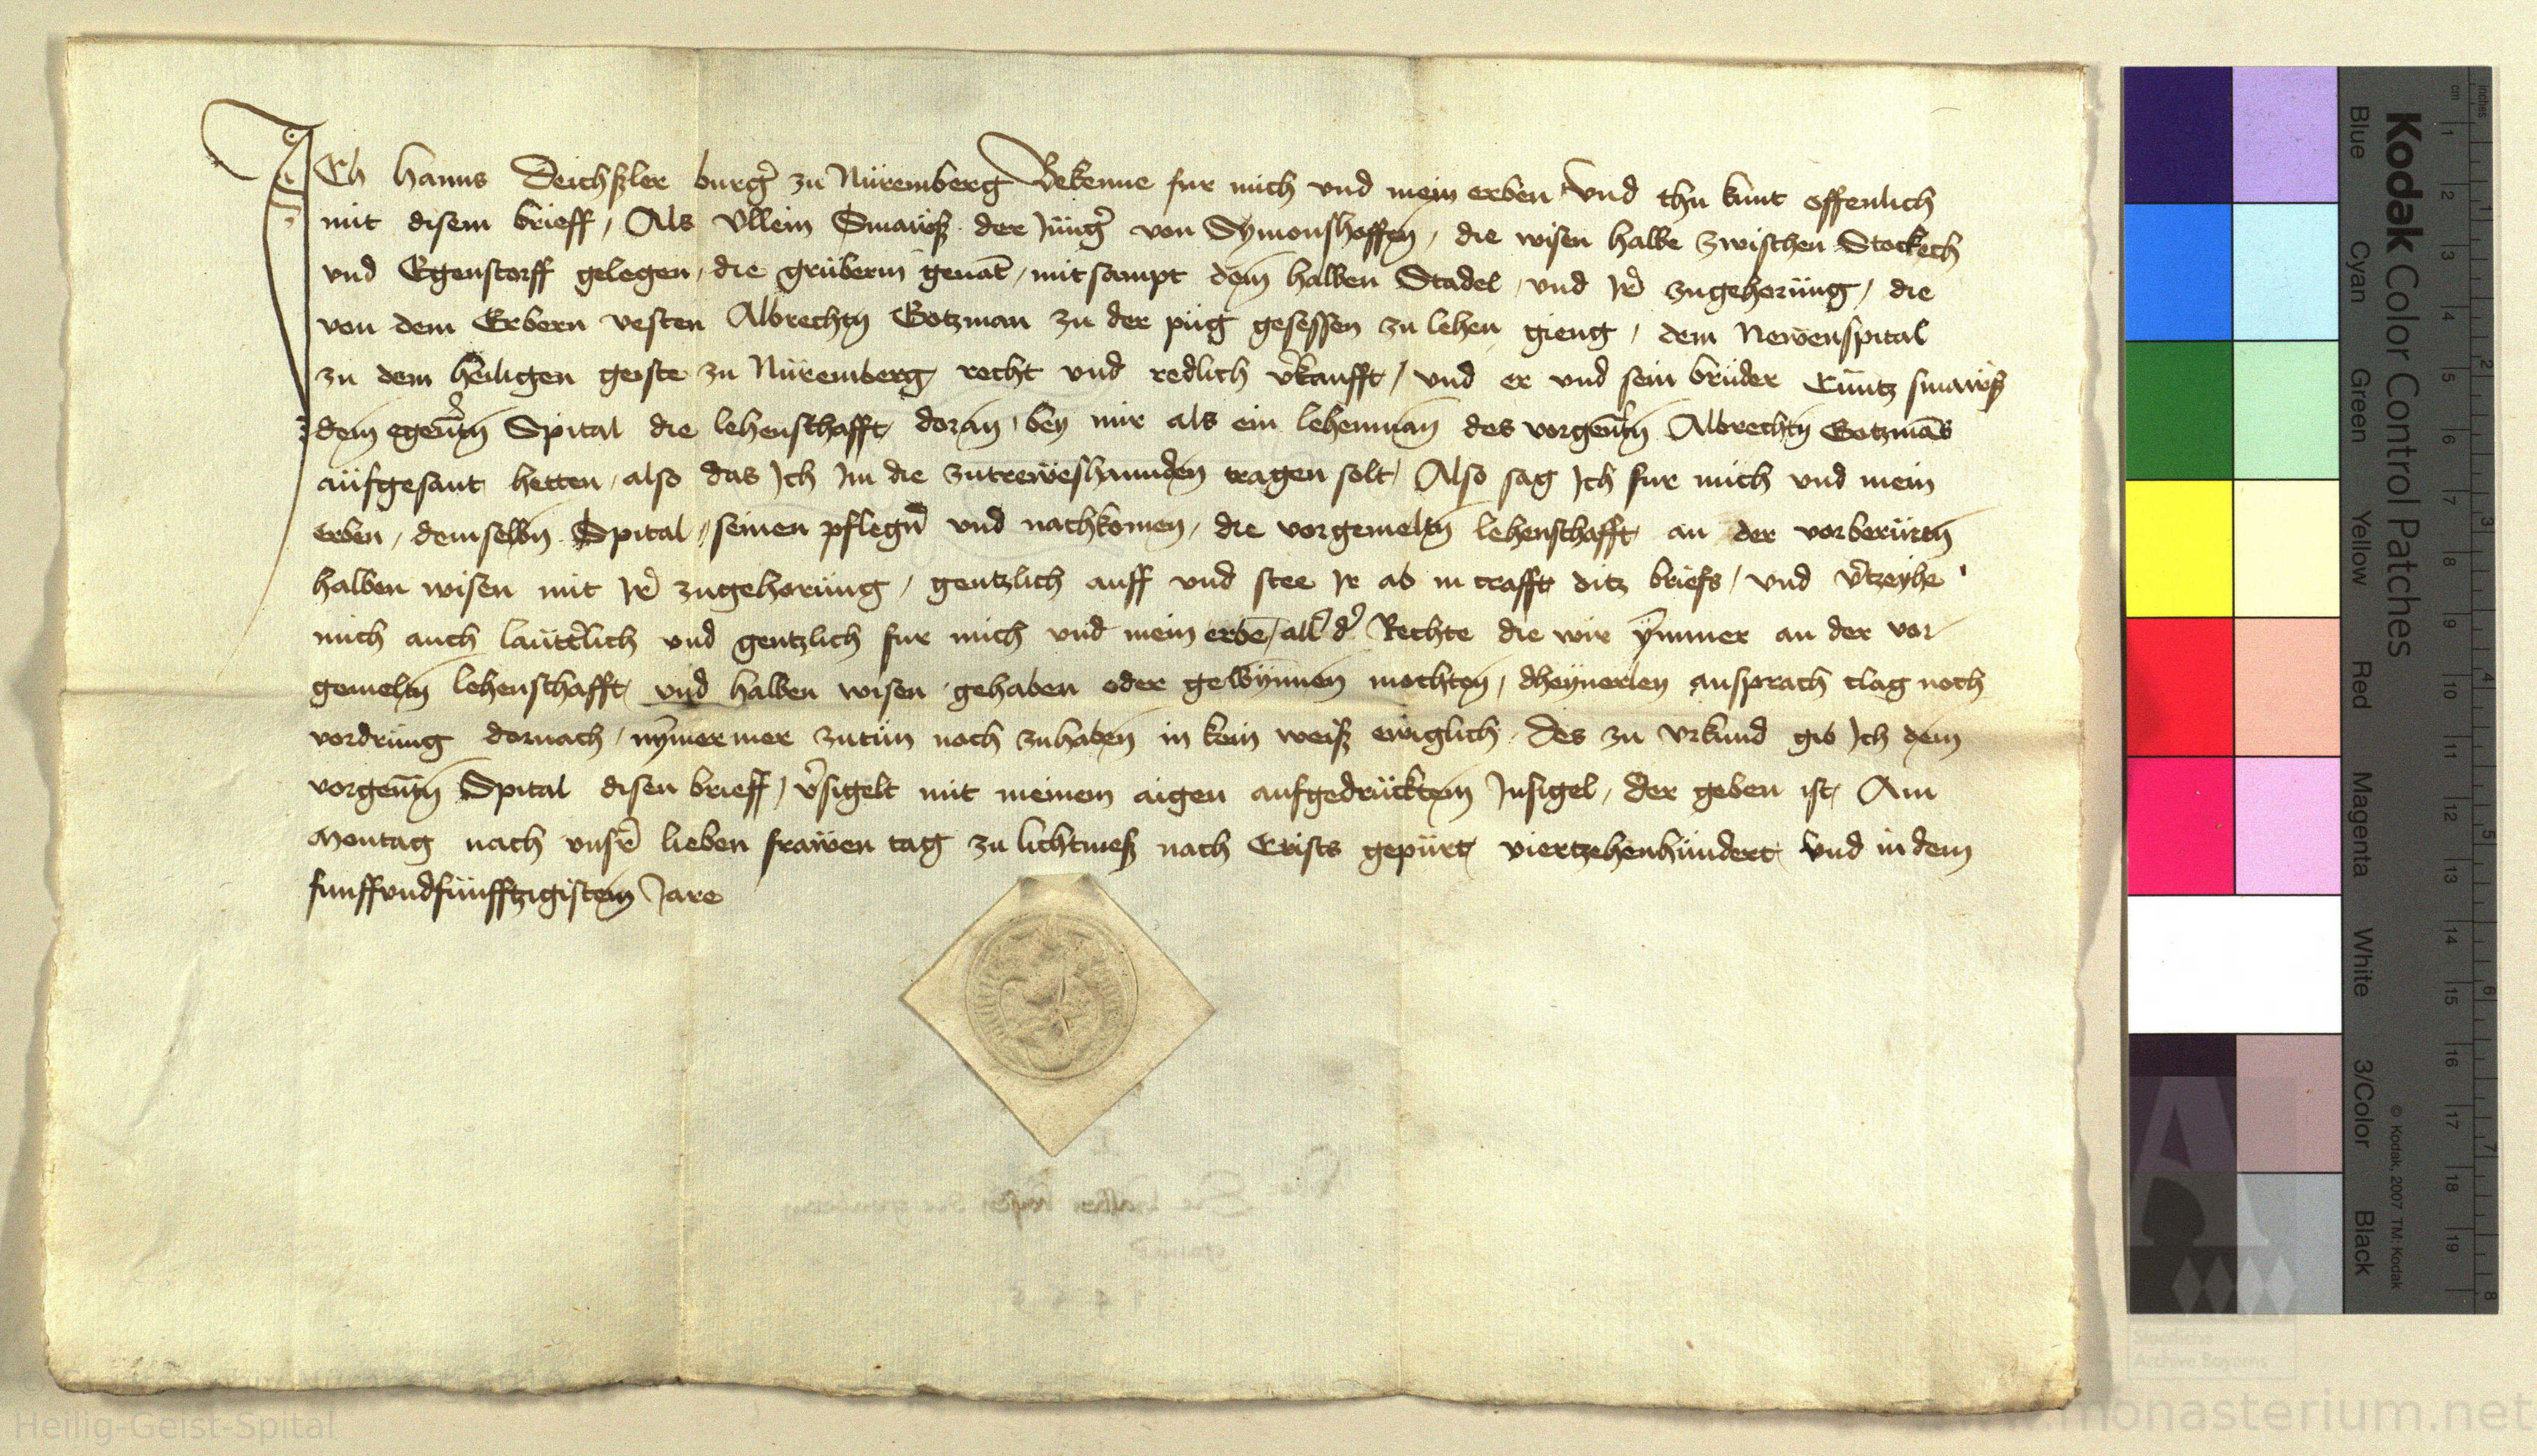 ICh Hanns Deichßler burg̉ zu Nüremberg Bekenne fur mich vnd mein erben Vnd thu kunt offenlich
mit disem brieff / Als Vllein Smawß der Jüng̉ von Symonshoffen / die wisen halbe zwischen Stockech
vnd Egenstorff gelegen / die grüberin genāt / mitsampt dem halben Stadel / vnd Jr̉ zugehorüng / die
von dem Erbern vesten Albrechten Gotzman zu der püg gesessen zu lehen gieng / dem Newenspital
zu dem heiligen geiste zu Nüremberg recht vnd redlich v̉kaufft / vnd er vnd sein brüder Cüntz smawß
dem egen̄ten Spital die lehenschafft doran / bey mir als ein lehenman des vorgen̄ten Albrechten Gotzmās
aüfgesant hetten / also das Jch Jm die zutreweshannden tragen solt / Also sag Jch fur mich vnd mein
erben / demselben Spital / seinen pflegn̉ vnd nachkomen / die vorgemelten lehenschafft an der vorberürten
halben wisen mit Jr̉ zugehorüng / gentzlich auff vnd stee Jr ab in crafft ditz briefs / vnd v̉tzeyhe
mich auch lautterlich vnd gentzlich fur mich vnd mein erbē / all̉ d̉ Rechte die wir ymmer an der vor
gemelten lehenschafft vnd halben wisen gehaben oder gewynnen mochten / dheynerley ansprach clag noch
vordrung dornach / nymermer zutün noch zuhaben in kein weiß ewiglich Des zu Vrkund gib Jch dem
vorgen̄ten Spital disen brieff / v̉sigelt mit meinem aigen aufgedrücktem Jnsigel / Der geben ist Am
Montag nach vnsr̉ lieben frawen tag zu lichtmeß nach Crists gepürt viertzehenhündert vnd in dem
funffvndfünfftzigistem Jare
Kodak Color Control Patches
Blue Cyan Green Yellow Red Magenta White 3/Color Black
© Kodak, 2007 TM: Kodak
cm 1 2 3 4 5 6 7 8 9 10 11 12 13 14 15 16 17 18 19
inches 1 2 3 4 5 6 7 8
Staatliche
Archive Bayerns
Heilig-Geist-Spital
www.monasterium.net